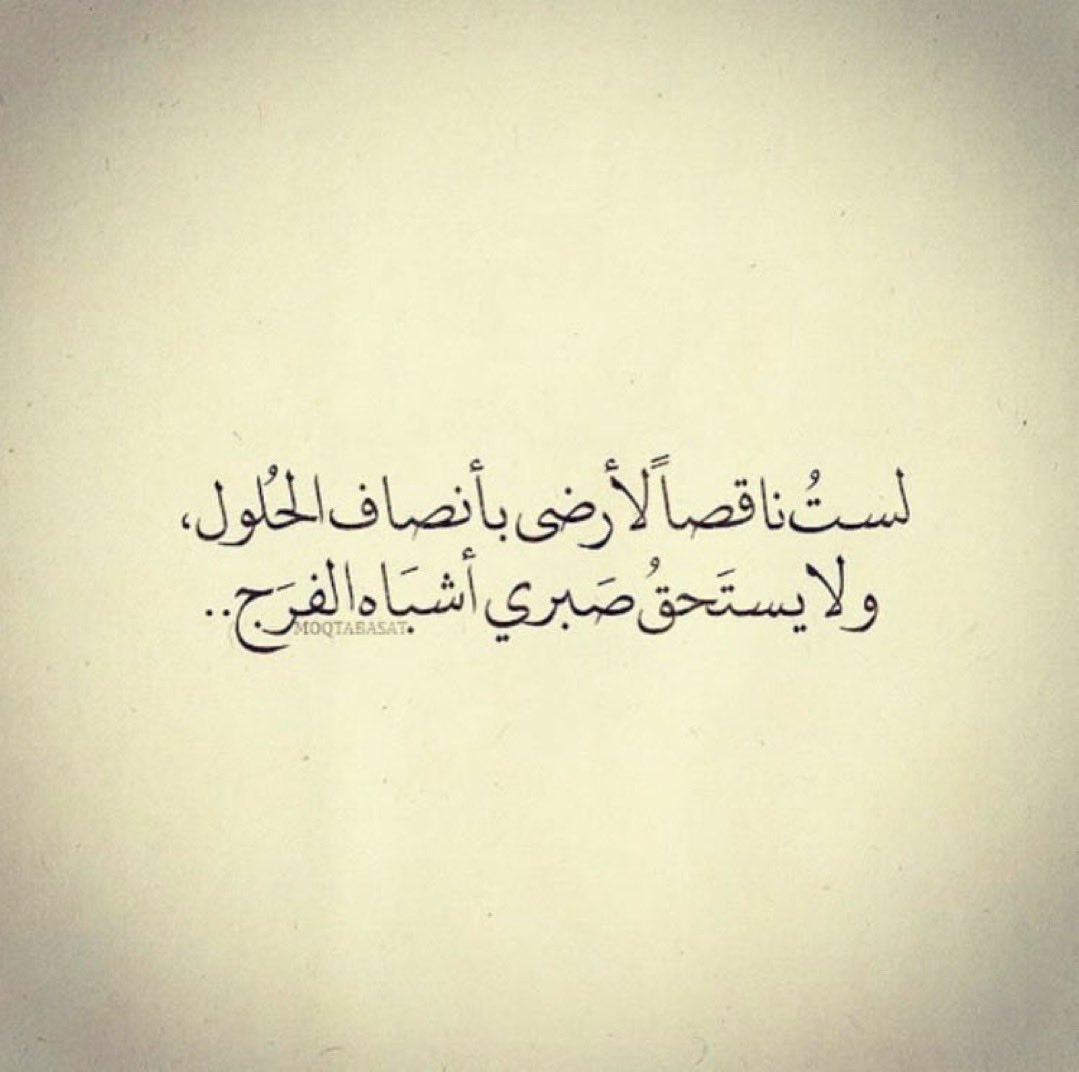 لستُ ناقصاً لأرضى بأنصاف الحُلول،
ولا يستَحقُ صَبري أشبَاه الفرَج..
MOQTABASAT